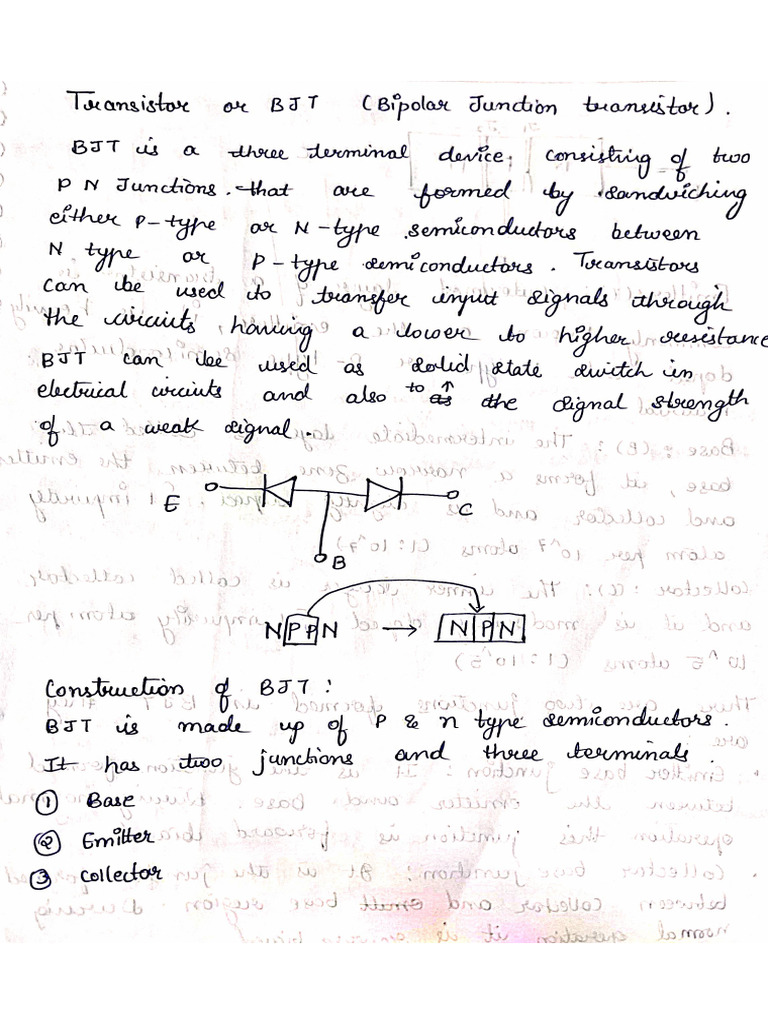 Transistor or BJT (Bipolar Junction transistor).
BJT is a three terminal device, consisting of two
P N Junctions. that are formed by sandwiching
either P-type or N-type semiconductors between
N type or P-type semiconductors. Transistors
can be used to transfer input signals through
the circuits, having a lower to higher resistance
BJT can be used as solid state switch in
electrical circuits and also to ↑ the signal strength
of a weak signal.
E C
B
N P P N → N P N
Construction of BJT:
BJT is made up of P & n type semiconductors.
It has two junctions and three terminals.
① Base
② Emitter
③ Collector